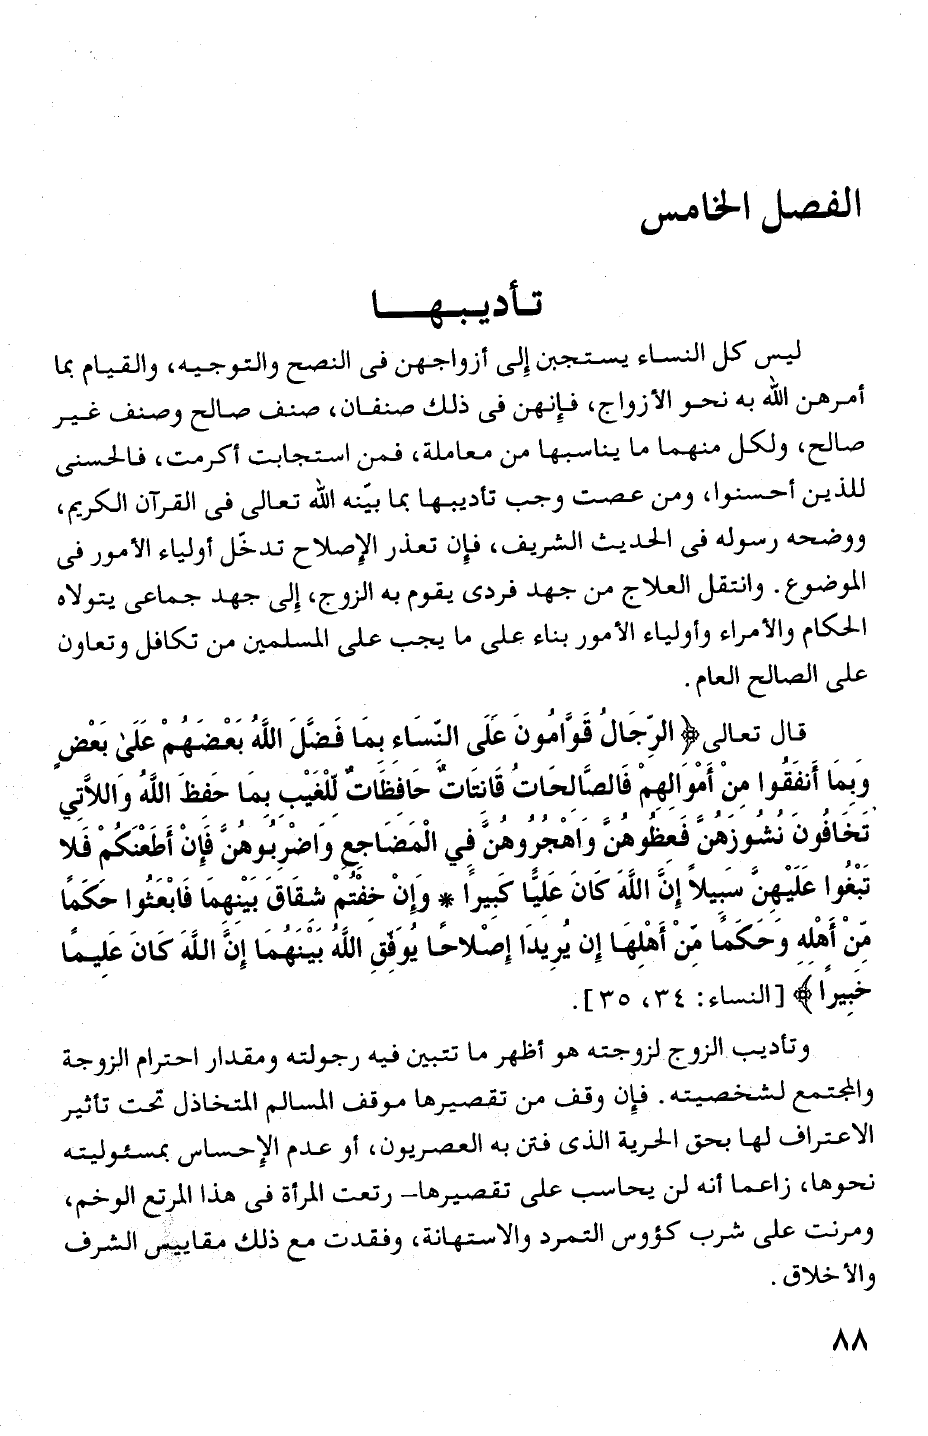 الفصل الخامس
تأديبهـــا
ليس كل النساء يستجبن إلى أزواجهن فى النصح والتوجيه، والقيام بما
أمرهن الله به نحو الأزواج، فإنهن فى ذلك صنفان، صنف صالح وصنف غير
صالح، ولكل منهما ما يناسبها من معاملة، فمن استجابت أكرمت، فالحسنى
للذين أحسنوا، ومن عصت وجب تأديبها بما بيّنه الله تعالى فى القرآن الكريم،
ووضحه رسوله فى الحديث الشريف، فإن تعذر الإصلاح تدخّل أولياء الأمور فى
الموضوع. وانتقل العلاج من جهد فردى يقوم به الزوج، إلى جهد جماعى يتولاه
الحكام والأمراء وأولياء الأمور بناء على ما يجب على المسلمين من تكافل وتعاون
على الصالح العام.
قال تعالى ﴿ الرِّجَالُ قَوَّامُونَ عَلَى النِّسَاءِ بِمَا فَضَّلَ اللَّهُ بَعْضَهُمْ عَلَىٰ بَعْضٍ
وَبِمَا أَنفَقُوا مِنْ أَمْوَالِهِمْ فَالصَّالِحَاتُ قَانِتَاتٌ حَافِظَاتٌ لِّلْغَيْبِ بِمَا حَفِظَ اللَّهُ وَاللاَّتِي
تَخَافُونَ نُشُوزَهُنَّ فَعِظُوهُنَّ وَاهْجُرُوهُنَّ فِي الْمَضَاجِعِ وَاضْرِبُوهُنَّ فَإِنْ أَطَعْنَكُمْ فَلا
تَبْغُوا عَلَيْهِنَّ سَبِيلاً إِنَّ اللَّهَ كَانَ عَلِيًّا كَبِيرًا * وَإِنْ خِفْتُمْ شِقَاقَ بَيْنِهِمَا فَابْعَثُوا حَكَمًا
مِّنْ أَهْلِهِ وَحَكَمًا مِّنْ أَهْلِهَا إِن يُرِيدَا إِصْلاحًا يُوَفِّقِ اللَّهُ بَيْنَهُمَا إِنَّ اللَّهَ كَانَ عَلِيمًا
خَبِيرًا ﴾ [النساء: ٣٤، ٣٥].
وتأديب الزوج لزوجته هو أظهر ما تتبين فيه رجولته ومقدار احترام الزوجة
والمجتمع لشخصيته. فإن وقف من تقصيرها موقف المسالم المتخاذل تحت تأثير
الاعتراف لها بحق الحرية الذى فتن به العصريون، أو عدم الإحساس بمسئوليته
نحوها، زاعما أنه لن يحاسب على تقصيرها– رتعت المرأة فى هذا المرتع الوخم،
ومرنت على شرب كؤوس التمرد والاستهانة، وفقدت مع ذلك مقاييس الشرف
والأخلاق.
٨٨